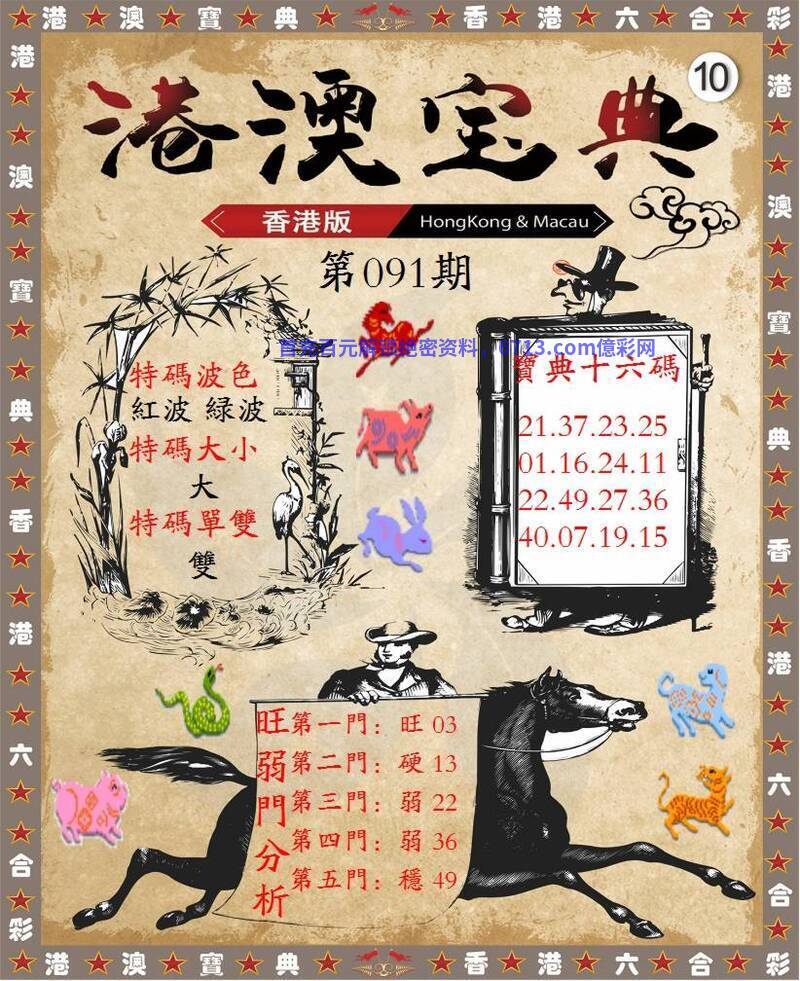 港澳寶典 香港六合彩
10
港澳宝典
香港版 HongKong & Macau
第091期
特碼波色
紅波 緑波
特碼大小
大
特碼單雙
雙
0713.com億彩网
寶典十六碼
21.37.23.25
01.16.24.11
22.49.27.36
40.07.19.15
旺弱門分析
第一門：旺 03
第二門：硬 13
第三門：弱 22
第四門：弱 36
第五門：穩 49
港澳寶典香港六合彩
港澳寶典香港六合彩
港澳寶典 香港六合彩